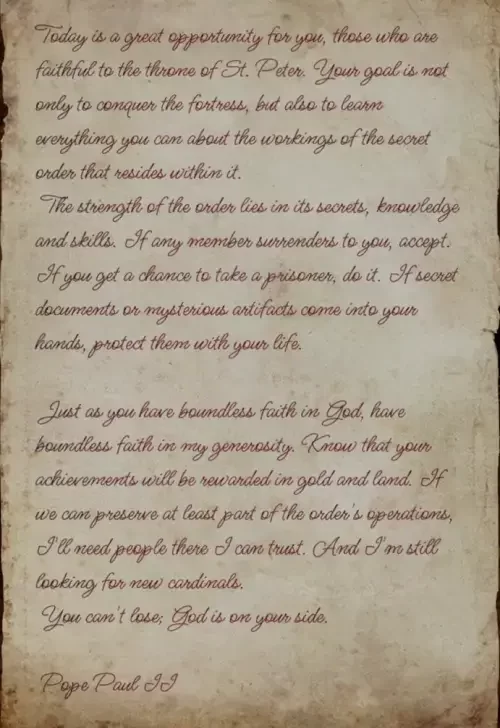 Today is a great opportunity for you, those who are
faithful to the throne of St. Peter. Your goal is not
only to conquer the fortress, but also to learn
everything you can about the workings of the secret
order that resides within it.
The strength of the order lies in its secrets, knowledge
and skills. If any member surrenders to you, accept.
If you get a chance to take a prisoner, do it. If secret
documents or mysterious artifacts come into your
hands, protect them with your life.
Just as you have boundless faith in God, have
boundless faith in my generosity. Know that your
achievements will be rewarded in gold and land. If
we can preserve at least part of the order's operations,
I'll need people there I can trust. And I'm still
looking for new cardinals.
You can't lose; God is on your side.
Pope Paul II